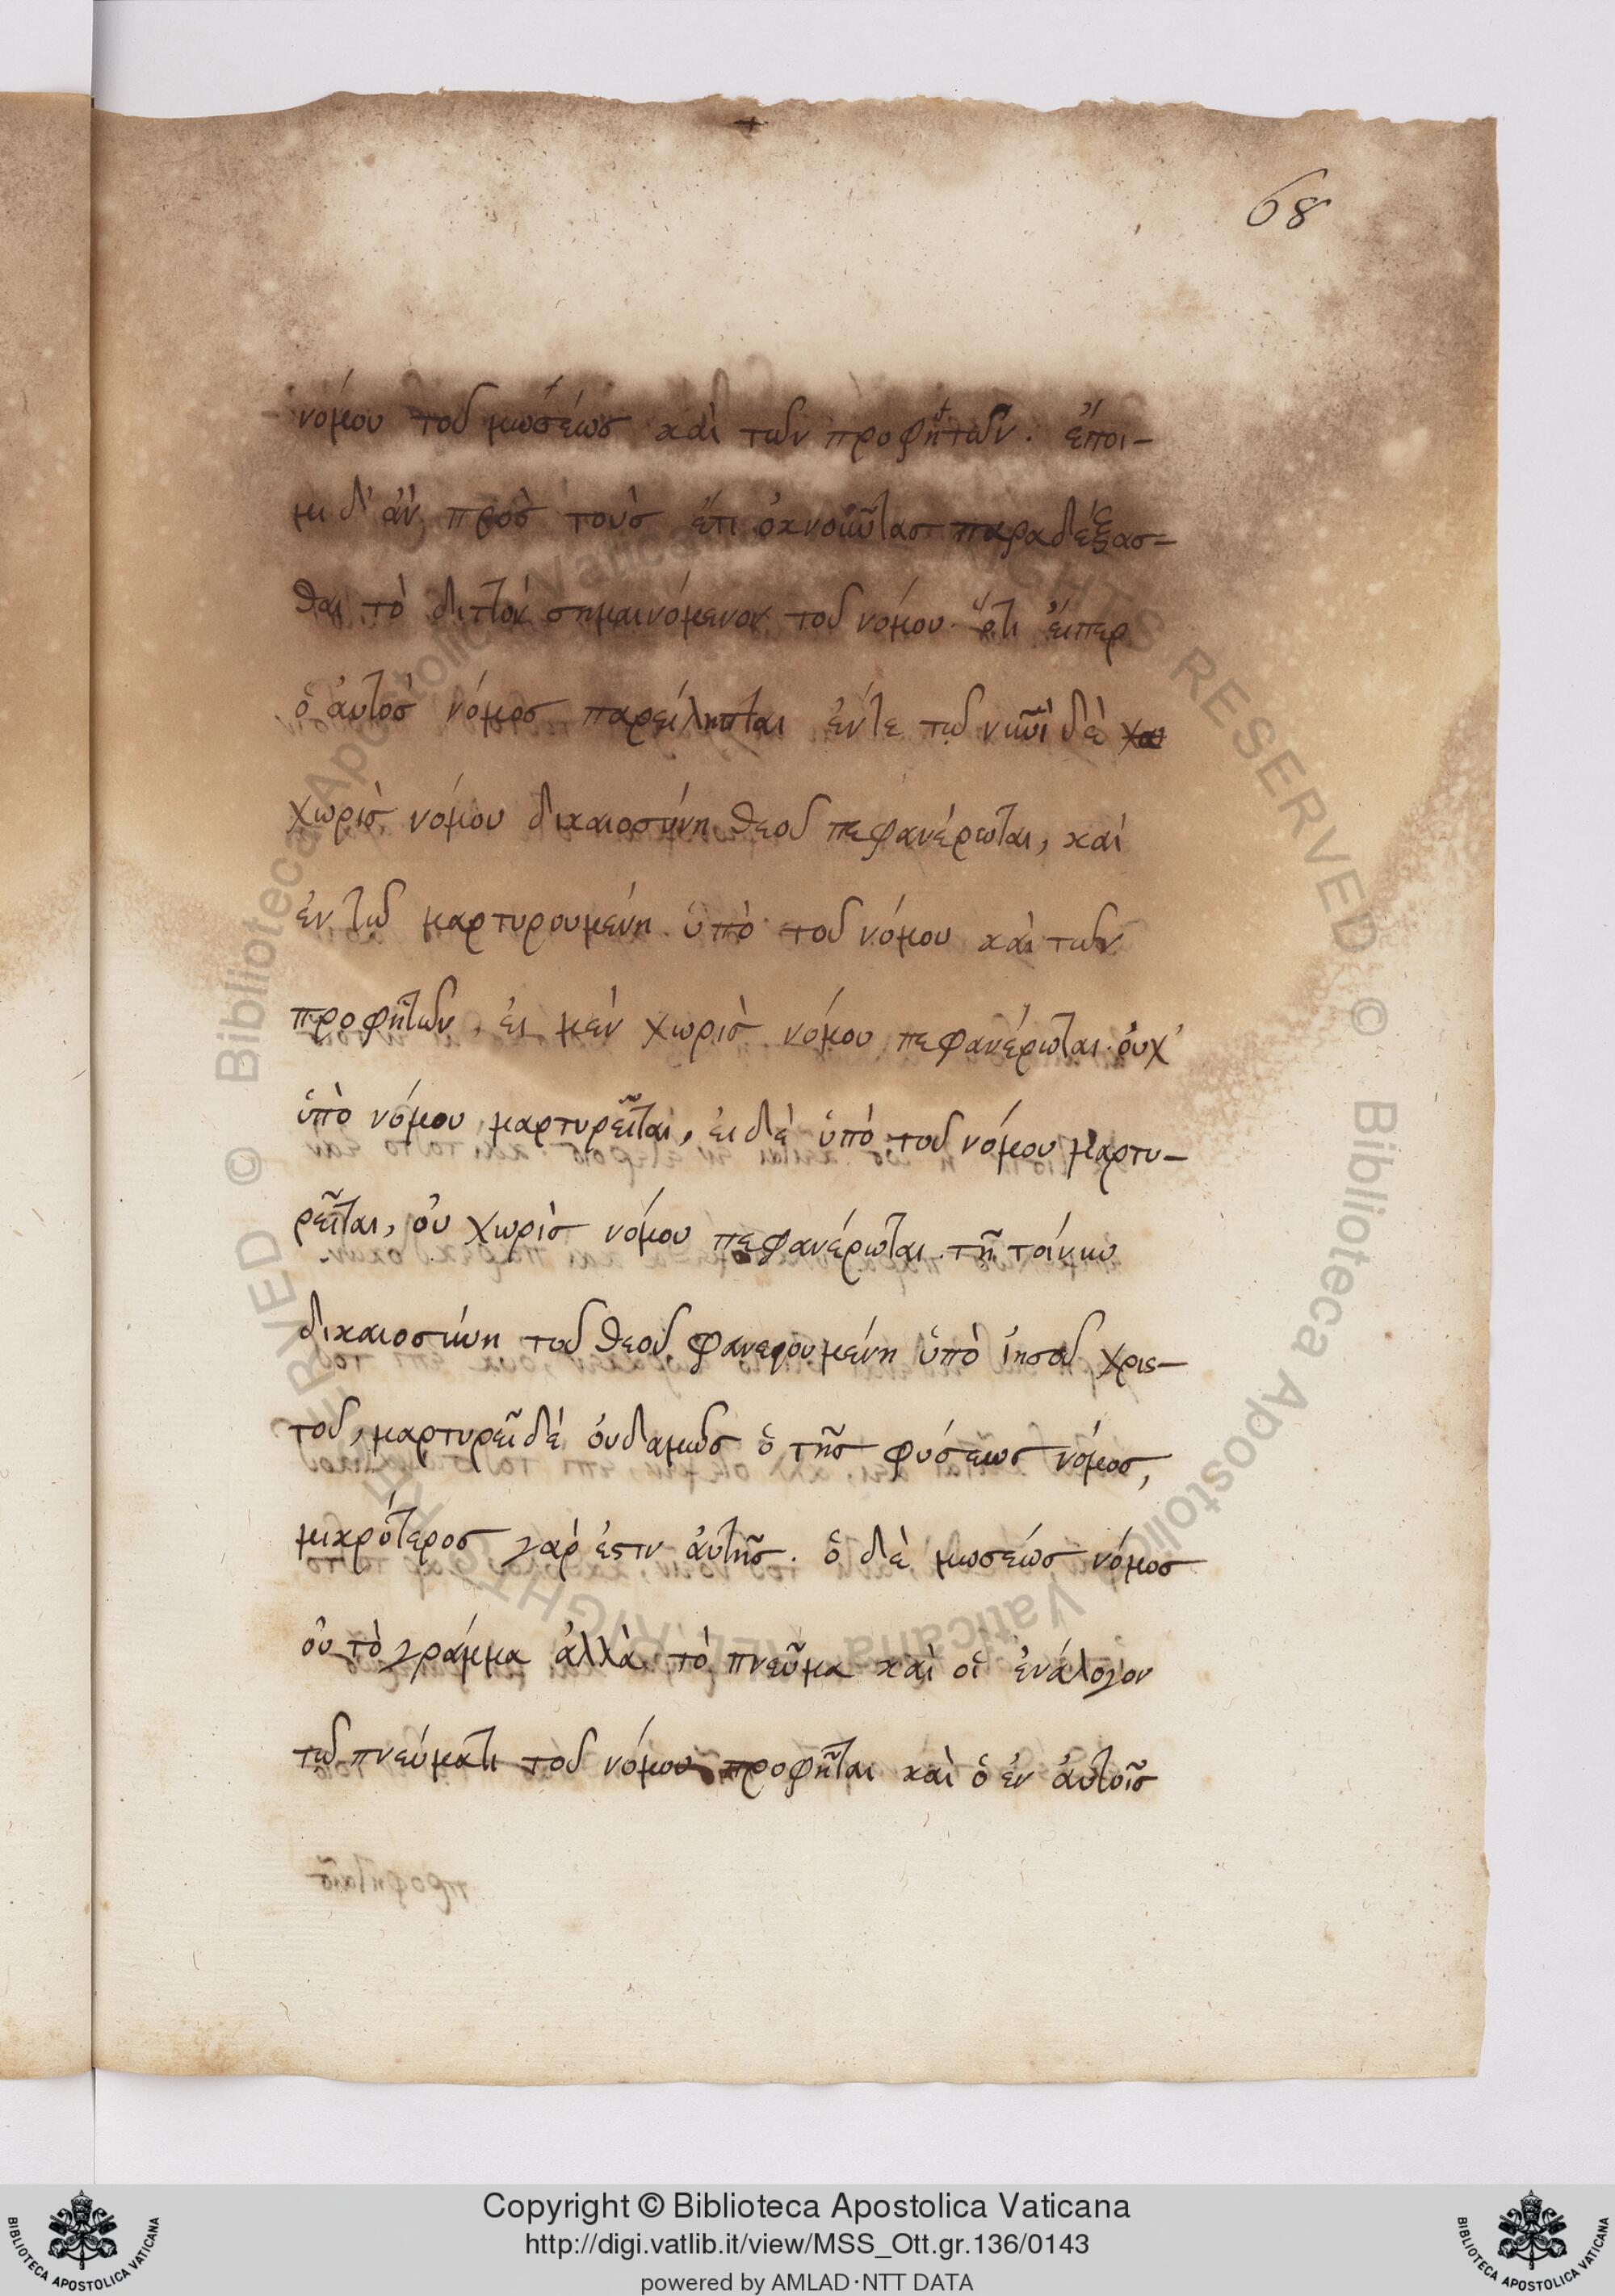 68
νόμου τοῦ μωσέως καὶ τῶν προφητῶν. εἴποι-
μι δ' ἂν πρὸς τοὺς ἔτι ὀκνοῦντας παραδέξασ-
θαι τὸ διττὸν σημαινόμενον τοῦ νόμου. ὅτι εἴπερ
ὁ ἀυτὸς νόμος παρείληπται ἔν τε τῷ νυνὶ δὲ
χωρὶς νόμου δικαιοσύνη θεοῦ πεφανέρωται, καὶ
ἐν τῶ μαρτυρουμένη ὑπὸ τοῦ νόμου καὶ τῶν
προφητῶν, ἐι μὲν χωρὶς νόμου πεφανέρωται. ὀυχ'
ὑπὸ νόμου μαρτυρεῖται, ἐι δὲ ὑπὸ τοῦ νόμου μαρτυ-
ρεῖται, ὀυ χωρὶς νόμου πεφανέρωται. τῆ τοίνυν
δικαιοσύνη τοῦ θεοῦ φανερουμένη ὑπὸ ἰησοῦ χρισ-
τοῦ, μαρτυρεῖ δὲ ὀυδαμῶς ὁ τῆς φύσεως νόμος,
μικρότερος γάρ ἐστιν ἀυτῆς. ὁ δὲ μωσέως νόμος
ὀυ τὸ γράμμα ἀλλὰ τὸ πνεῦμα καὶ οἱ ἐνάλογον
τῶ πνεύματι τοῦ νόμου προφῆται καὶ ὁ ἐν ἀυτοῖς
Copyright © Biblioteca Apostolica Vaticana
http://digi.vatlib.it/view/MSS_Ott.gr.136/0143
powered by AMLAD·NTT DATA
BIBLIOTECA APOSTOLICA VATICANA
BIBLIOTECA APOSTOLICA VATICANA